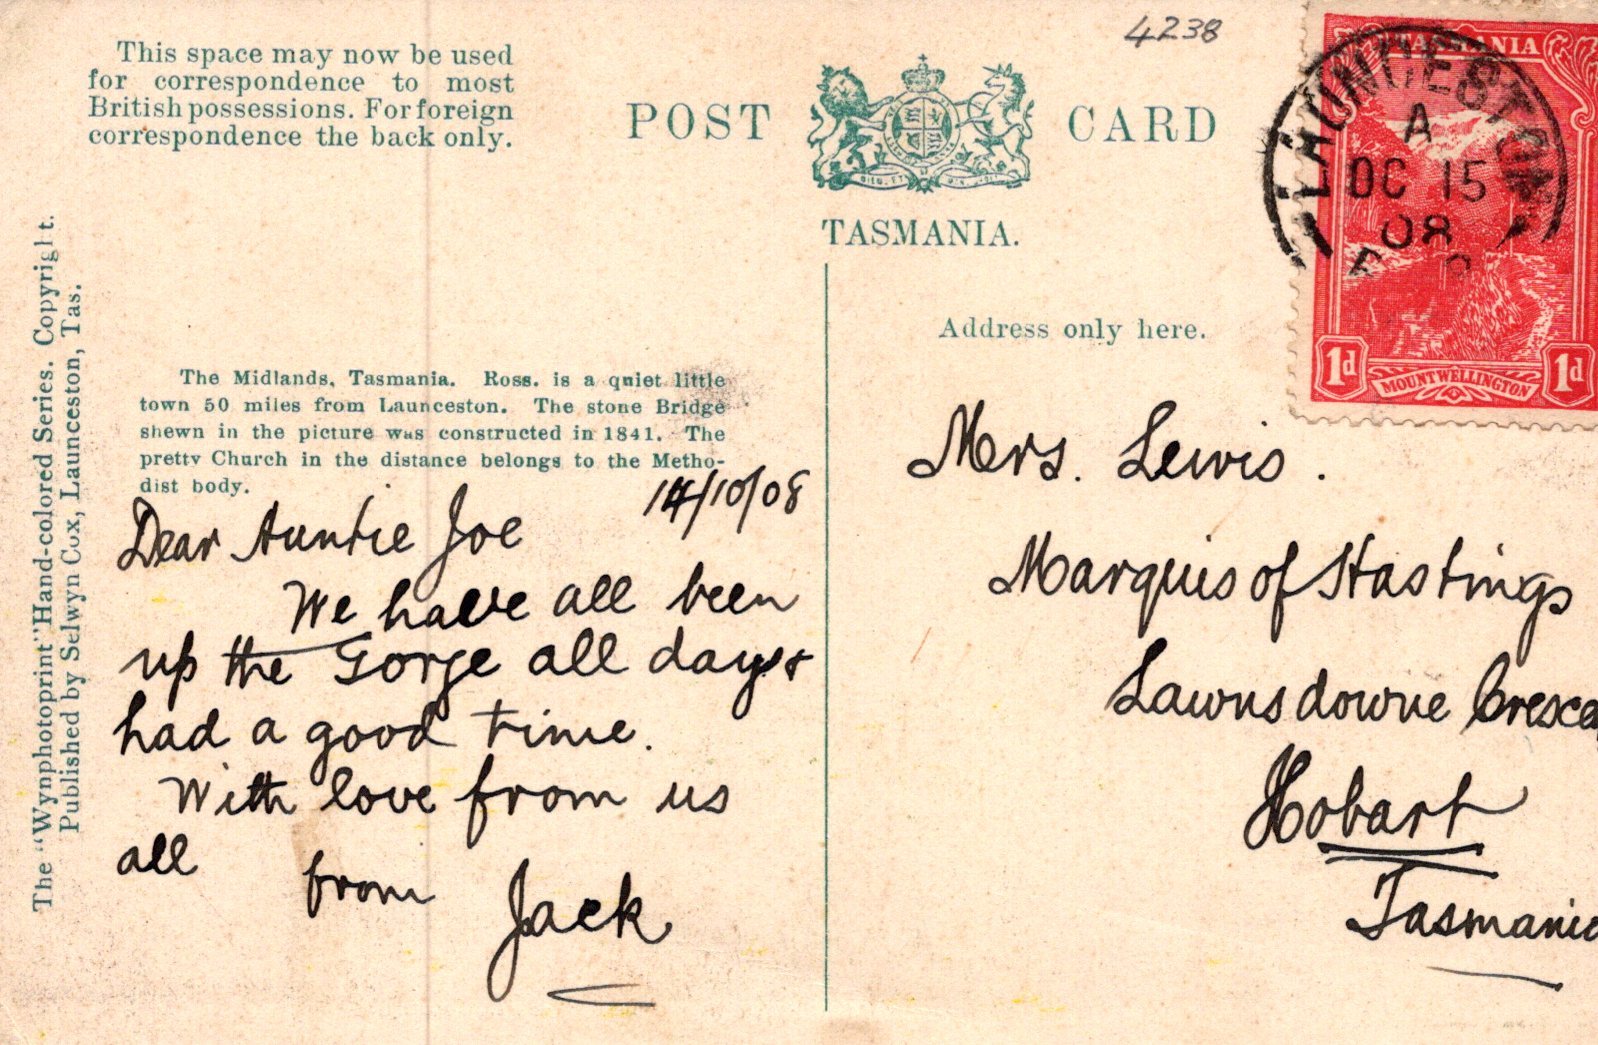 4238
This space may now be used
for correspondence to most
British possessions. For foreign
correspondence the back only.
POST CARD
TASMANIA.
TASMANIA
LAUNCESTON
A
OC 15
08
1d
MOUNT WELLINGTON
1d
The "Wynphotoprint" Hand-colored Series. Copyright.
Published by Selwyn Cox, Launceston, Tas.
The Midlands, Tasmania. Ross. is a quiet little
town 50 miles from Launceston. The stone Bridge
shewn in the picture was constructed in 1841. The
pretty Church in the distance belongs to the Metho-
dist body.
14/10/08
Dear Auntie Joe
We have all been
up the Gorge all day &
had a good time.
With love from us
all
from
Jack
Address only here.
Mrs. Lewis.
Marquis of Hastings
Lawnsdowne Cresce
Hobart
Tasmania